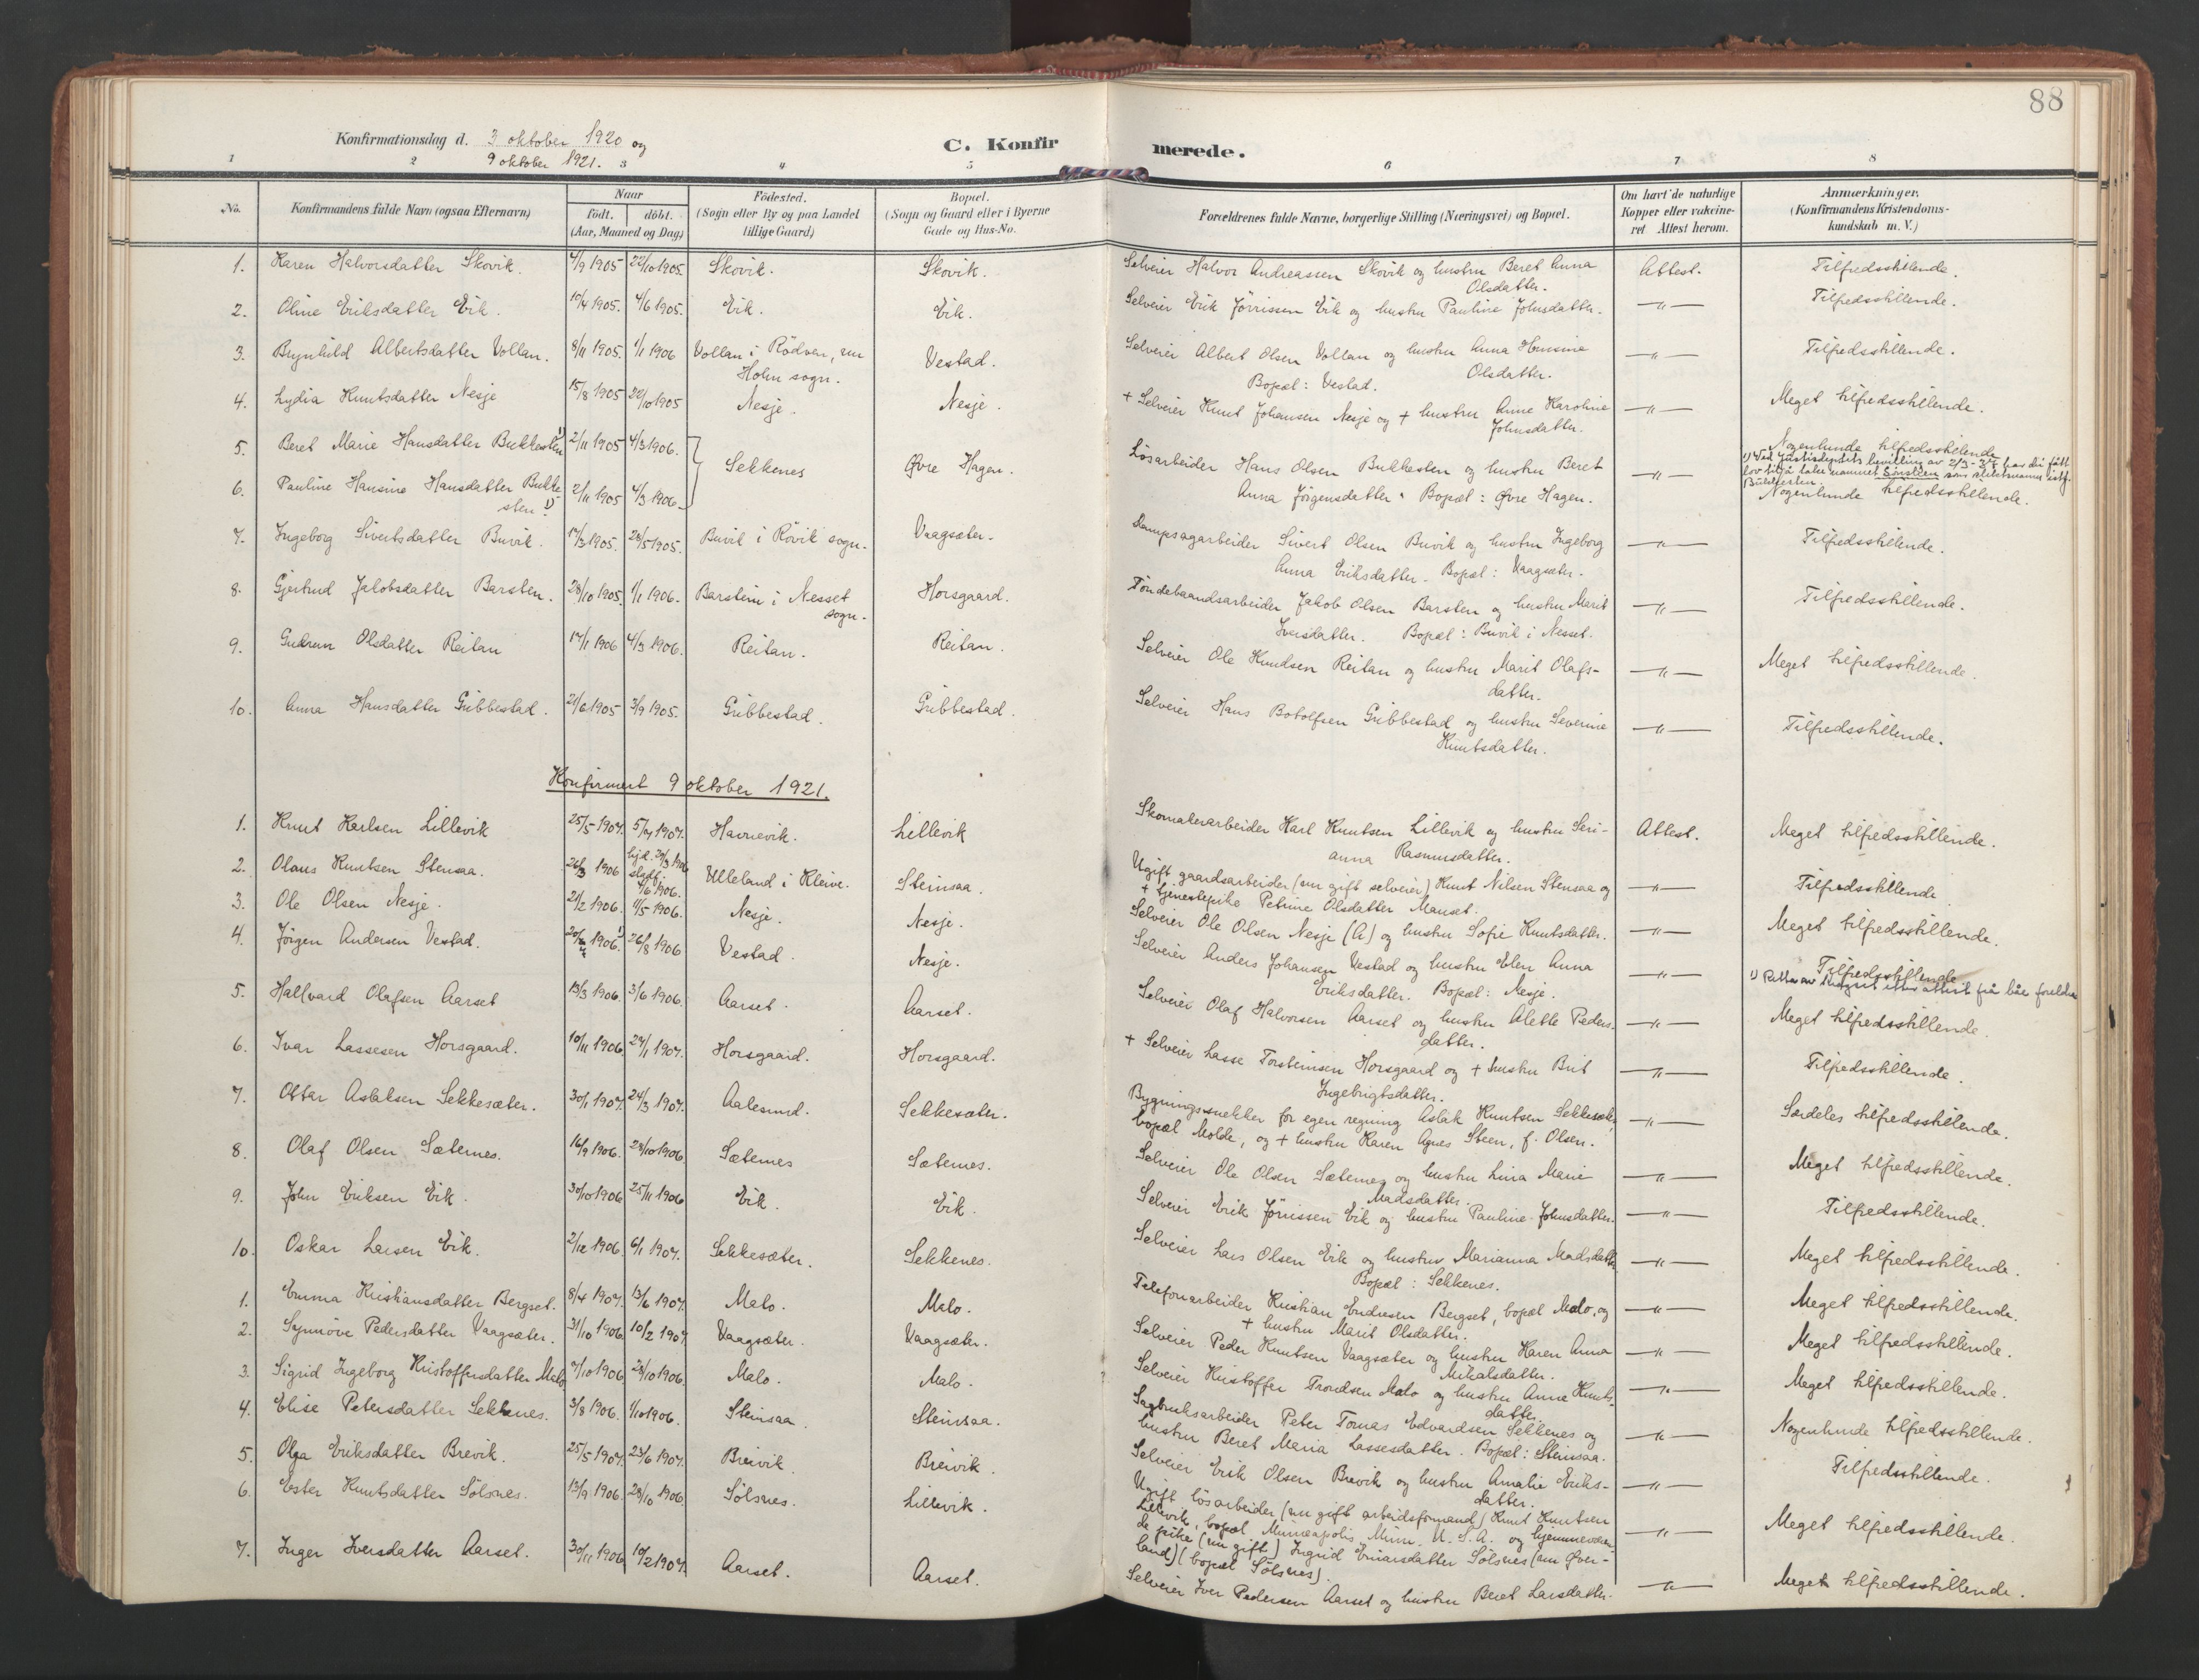 88
Konfirmationsdag d. 3 oktober 1920 og
9 oktober 1921.
C. Konfirmerede.
1 2 3 4 5 6 7 8
No.
Konfirmandens fulde Navn (ogsaa Efternavn)
Naar
født. døbt.
(Aar, Maaned og Dag)
Fødested.
(Sogn eller By og paa Landet
tillige Gaard)
Bopæl.
(Sogn og Gaard eller i Byerne
Gade og Hus-No.
Forældrenes fulde Navne, borgerlige Stilling (Næringsvei) og Bopæl.
Om havt de naturlige
Kopper eller vakcine-
ret Attest herom.
Anmærkninger.
(Konfirmandens Kristendoms-
kundskab m. V.)
1. Karen Halvorsdatter Skovik. 4/9 1905 22/10 1905. Skovik. Skovik. Selveier Halvor Andreassen Skovik og hustru Beret Anna Attest. Tilfredsstillende.
Olsdatter.
2. Oline Eriksdatter Eik. 10/4 1905. 4/6 1905. Eik. Eik. Selveier Erik Jørrissen Eik og hustru Pauline Johnsdatter. —"— Tilfredsstillende.
3. Brynhild Albertsdatter Vollan. 8/11 1905. 1/1 1906 Vollan i Rødven, nu Vestad. Selveier Albert Olsen Vollan og hustru Anna Hansine —"— Tilfredsstillende.
Holm sogn. Olsdatter.
Bopæl: Vestad.
4. Lydia Knutsdatter Nesje 15/8 1905 22/10 1905 Nesje. Nesje. + Selveier Knut Johansen Nesje og + hustru Anne Karoline —"— Meget tilfredsstillende.
Johnsdatter.
5. Beret Marie Hansdatter Bukkesten 1) 2/11 1905 4/3 1906. Sekkenes Øvre Hagen. Løsarbeider Hans Olsen Bukkesten og hustru Beret —"— Nogenlunde tilfredsstillende
1) Ved Justisdeptets bevilling av 2/3-38 har din fått
lov til å ta navnet Sønsteen som slektsnavn istf.
Bukkesten.
6. Pauline Hansine Hansdatter Bukke 2/11 1905 4/3 1906. Anna Jørgensdatter. Bopæl: Øvre Hagen. Nogenlunde tilfredsstillende.
sten 1)
7. Ingeborg Sivertsdatter Buvik. 17/3 1905. 28/5 1905. Buvik i Røvik sogn. Vaagsæter. Dampsagarbeider Sivert Olsen Buvik og hustru Ingeborg —"— Tilfredsstillende.
Anna Eriksdatter. Bopæl: Vaagsæter.
8. Gjertrud Jakobsdatter Barsten. 28/10 1905. 1/1 1906. Barstein i Nesset Horsgaard. Tøndebaandsarbeider Jakob Olsen Barsten og hustru Marit —"— Tilfredsstillende.
sogn. Iversdatter. Bopæl: Buvik i Nesset.
9. Gudrun Olsdatter Reitan 17/1 1906 4/3 1906. Reitan. Reitan. Selveier Ole Knudsen Reitan og hustru Marit Olafs- —"— Meget tilfredsstillende.
datter.
10. Anna Hansdatter Gribbestad. 21/6 1905 3/9 1905. Gribbestad. Gribbestad. Selveier Hans Botolfsen Gribbestad og hustru Severine —"— Tilfredsstillende.
Knutsdatter.
Konfirmert 9 oktober 1921.
1. Knut Karlsen Lillevik 25/5 1907. 5/7 1907. Havnevik. Lillevik Skomakerarbeider Karl Knutsen Lillevik og hustru Seri- Attest. Meget tilfredsstillende.
anna Rasmusdatter.
2. Olaus Knutsen Stensaa. 26/3 1906 hjd. 29/3 1906 stadf. 4/6 1906. Ulleland i Kleive. Steinsaa. Ugift gaardsarbeider (nu gift selveier) Knut Nilsen Stensaa og —"— Tilfredsstillende
+ tjenestepike Petrine Olsdatter Manset.
3. Ole Olsen Nesje. 21/2 1906. 11/5 1906. Nesje. Nesje. Selveier Ole Olsen Nesje (A) og hustru Sofie Knutsdatter. —"— Meget tilfredsstillende.
4. Jørgen Andersen Vestad. 1906. 1) 26/8 1906 Vestad. Nesje. Selveier Anders Johansen Vestad og hustru Elen Anna —"— Tilfredsstillende
Eriksdatter. Bopæl: Nesje.
5. Hallvard Olafsen Aarset 13/3 1906. 3/6 1906. Aarset. Aarset. Selveier Olaf Halvorsen Aarset og hustru Alette Peders- —"— Meget tilfredsstillende.
datter.
6. Ivar Lassesen Horsgaard. 10/11 1906. 27/1 1907. Horsgaard. Horsgaard. + Selveier Lasse Torsteinsen Horsgaard og + hustru Brit —"— Tilfredsstillende.
Ingebrigtsdatter.
7. Ottar Aslaksen Sekkesæter. 30/1 1907. 24/3 1907. Aalesund. Sekkesæter. Bygningssnekker for egen regning Aslak Knutsen Sekkesæter, —"— Særdeles tilfredsstillende.
bopæl Molde, og + hustru Karen Agnes Steen, f. Olsen.
8. Olaf Olsen Sæternes. 16/9 1906. 28/10 1906. Sæternes Sæternes. Selveier Ole Olsen Sæternes og hustru Lina Marie —"— Meget tilfredsstillende.
Madsdatter.
9. John Eriksen Eik. 30/10 1906 25/11 1906 Eik. Eik. Selveier Erik Jørrissen Eik og hustru Pauline Johnsdatter. —"— Tilfredsstillende.
10. Oskar Larsen Eik. 2/12 1906. 6/1 1907. Sekkesæter. Sekkenes. Selveier Lars Olsen Eik og hustru Marianna Madsdatter —"— Meget tilfredsstillende.
Bopæl: Sekkenes.
1. Emma Kristiansdatter Bergset. 8/4 1907. 13/6 1907. Malo. Malo. Telefonarbeider Kristian Endresen Bergset, bopæl Malo, og —"— Meget tilfredsstillende.
+ hustru Marit Olsdatter.
2. Synnøve Pedersdatter Vaagsæter. 31/10 1906. 10/2 1907 Vaagsæter. Vaagsæter. Selveier Peder Knutsen Vaagsæter og hustru Karen Anna —"— Meget tilfredsstillende.
Mikalsdatter.
3. Sigrid Ingeborg Kristoffersdatter Malo 7/10 1906 28/10 1906. Malo. Malo. Selveier Kristoffer Trondsen Malo og hustru Anne Knuts- —"— Meget tilfredsstillende.
datter.
4. Elise Petersdatter Sekkenes. 3/8 1906. 1/10 1906. Steinsaa. Steinsaa. Sagbruksarbeider Peter Tomas Edvardsen Sekkenes og —"— Nogenlunde tilfredsstillende.
hustru Beret Maria Lassesdatter. Bopæl: Steinsaa.
5. Olga Eriksdatter Brevik. 25/5 1907. 23/6 1907. Breivik. Breivik. Selveier Erik Olsen Brevik og hustru Amalie Eriks- —"— Tilfredsstillende.
datter.
6. Ester Knutsdatter Sølsnes. 13/9 1906. 28/10 1906 Sølsnes. Lillevik. Ugift løsarbeider (nu gift arbeidsformand) Knut Knutsen —"— Meget tilfredsstillende.
Lillevik, bopæl Minneapolis, Minn. U. S. A. og hjemmeværen-
de pike (nu gift) Ingrid Einarsdatter Sølsnes (nu Øver-
land) (bopæl Sølsnes).
7. Inger Iversdatter Aarset. 30/11 1906 10/2 1907. Aarset. Aarset. Selveier Iver Pedersen Aarset og hustru Beret Larsdatter. —"— Meget tilfredsstillende.